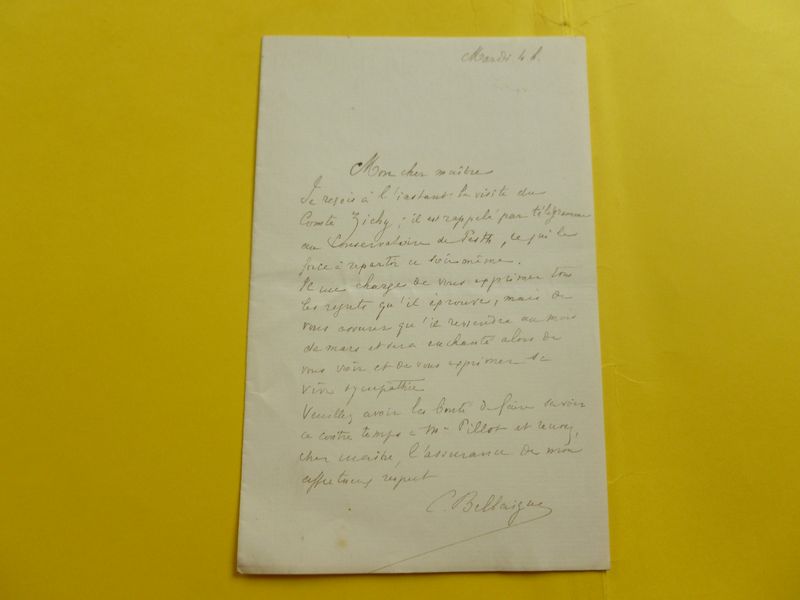 Mardi 4 h.
Mon cher maître
Je reçois à l'instant la visite du
Comte Zichy ; il est rappelé par télégramme
au Conservatoire de Pesth, ce qui le
force à repartir ce soir même.
Il me charge de vous exprimer tous
les regrets qu'il éprouve, mais de
vous assurer qu'il reviendra au mois
de mars et sera enchanté alors de
vous voir et de vous exprimer sa
vive sympathie
Veuillez avoir la bonté de faire savoir
ce contre temps à Mr Pillot et recevez,
cher maître, l'assurance de mon
affectueux respect
C. Bellaigue